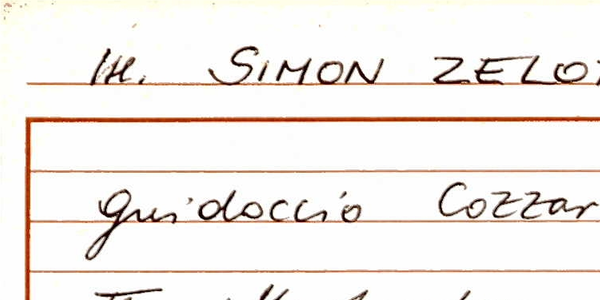 Hl. SIMON ZELO
Guidoccio Cozzar